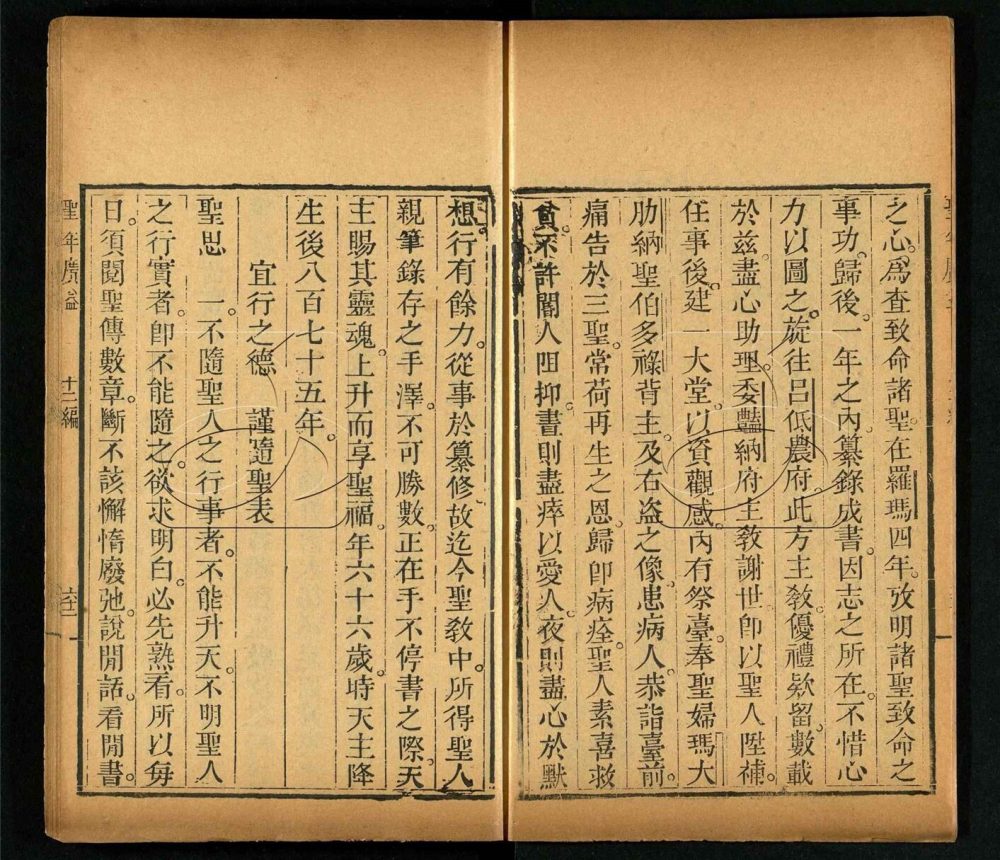 之心。為查致命諸聖。在羅瑪四年。攷明諸聖致命之
事功。歸後。一年之內。纂錄成書。因志之所在。不惜心
力以圖之。旋往呂低農府。此方主教。優禮欵留。數載
於兹。盡心助理。委豔納府主教謝世。卽以聖人陞補。
任事後。建一大堂。以資觀感。內有祭臺。奉聖婦瑪大
肋納。聖伯多祿背主。及右盜之像。患病人。恭詣臺前。
痛告於三聖。常荷再生之恩。歸卽病痊。聖人素喜救
貧。不許閽人阻抑。晝則盡瘁以愛人。夜則盡心於默
想。行有餘力。從事於纂修。故迄今聖教中。所得聖人
親筆錄存之手澤。不可勝數。正在手不停書之際。天
主賜其靈魂。上升而享聖福。年六十六歲。時天主降
生後八百七十五年。
宜行之德 謹隨聖表
聖思 一不隨聖人之行事者。不能升天。不明聖人
之行實者。卽不能隨之。欲求明白。必先熟看。所以每
日。須閱聖傳數章。斷不該懈惰廢弛。說閒話。看閒書。
聖年廣益 十二編